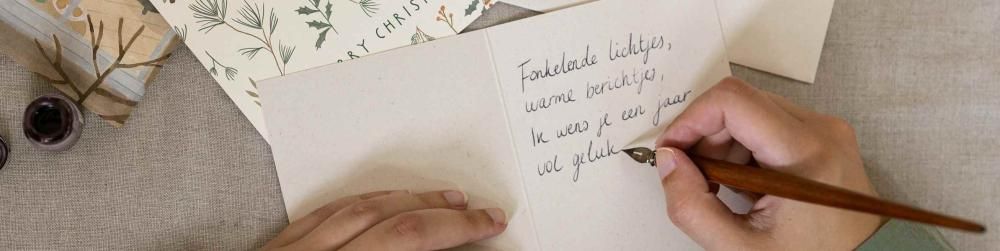 RRY CHRIST
Fonkelende lichtjes,
warme berichtjes,
Ik wens je een jaar
vol geluk